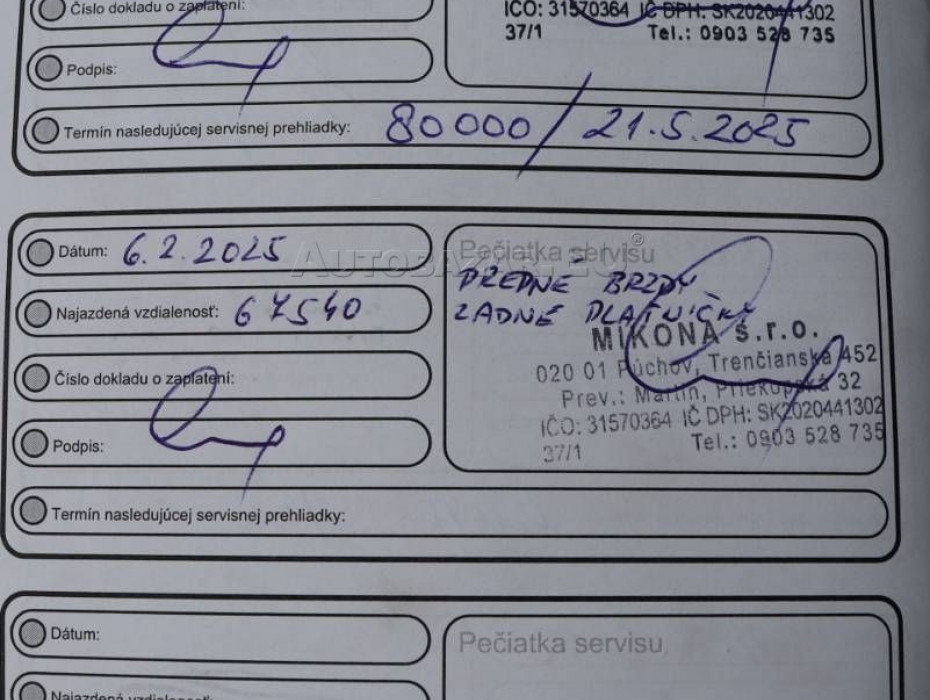 Číslo dokladu o zaplatení:
IČO: 31570364 IČ DPH: SK2020441302
37/1 Tel.: 0903 528 735
Podpis:
Termín nasledujúcej servisnej prehliadky: 80 000 / 21.5.2025
Dátum: 6.2.2025
Pečiatka servisu
PREDNÉ BRZDY
Najazdená vzdialenosť: 67540
ZADNÉ PLATNIČKY
MIKONA s.r.o.
020 01 Púchov, Trenčianska 452
Číslo dokladu o zaplatení:
Prev.: Martin, Priekopská 32
IČO: 31570364 IČ DPH: SK2020441302
Podpis:
37/1 Tel.: 0903 528 735
Termín nasledujúcej servisnej prehliadky:
Dátum:
Pečiatka servisu
Najazdená vzdialenosť: